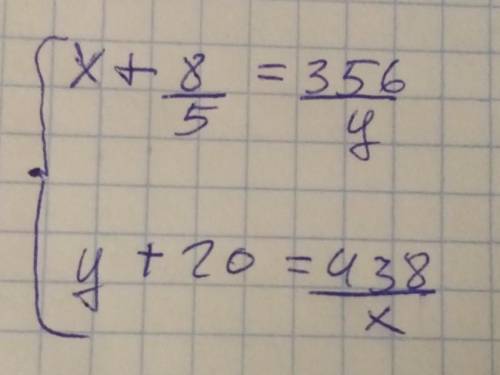 x + 8/5 = 356/y
y + 20 = 438/x